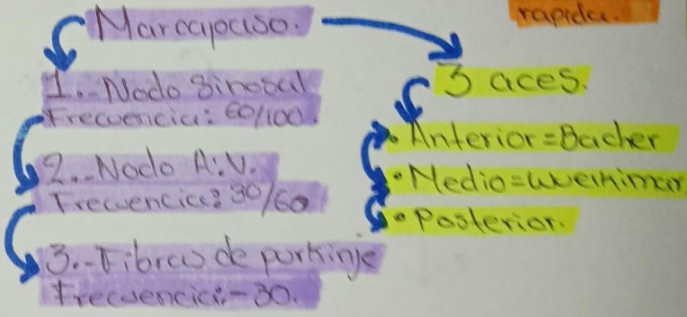 Marcapaso.
rapida.
1.- Nodo Sinosal
Frecuencia: 60/100.
2.- Nodo A.V.
Frecuencia: 30/60
3.- Fibras de purkinje
Frecuencia: -30.
3 aces.
• Anterior = Bacher
• Medio = Weikimar
• Posterior.